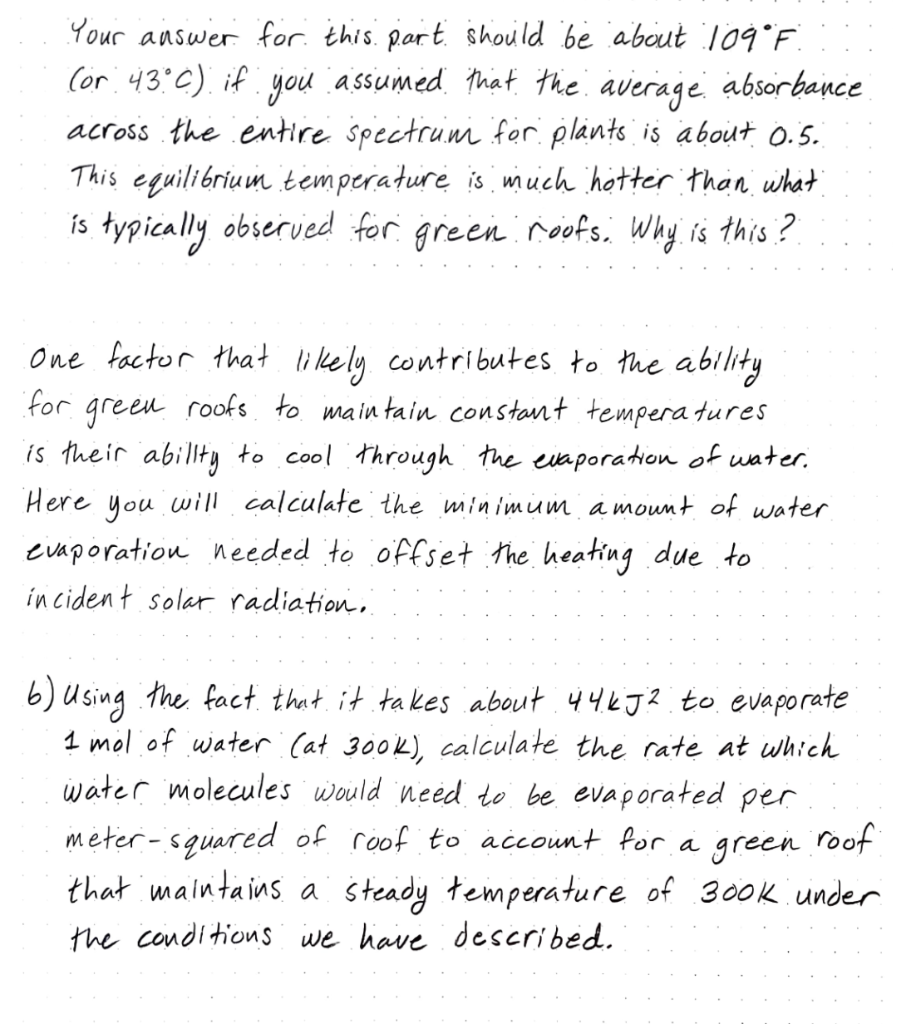 Your answer for this part should be about 109°F
(or 43°C) if you assumed that the average absorbance
across the entire spectrum for plants is about 0.5.
This equilibrium temperature is much hotter than what
is typically observed for green roofs. Why is this?
One factor that likely contributes to the ability
for green roofs to maintain constant temperatures
is their ability to cool through the evaporation of water.
Here you will calculate the minimum amount of water
evaporation needed to offset the heating due to
incident solar radiation.
b) Using the fact that it takes about 44kJ² to evaporate
1 mol of water (at 300K), calculate the rate at which
water molecules would need to be evaporated per
meter-squared of roof to account for a green roof
that maintains a steady temperature of 300K under
the conditions we have described.